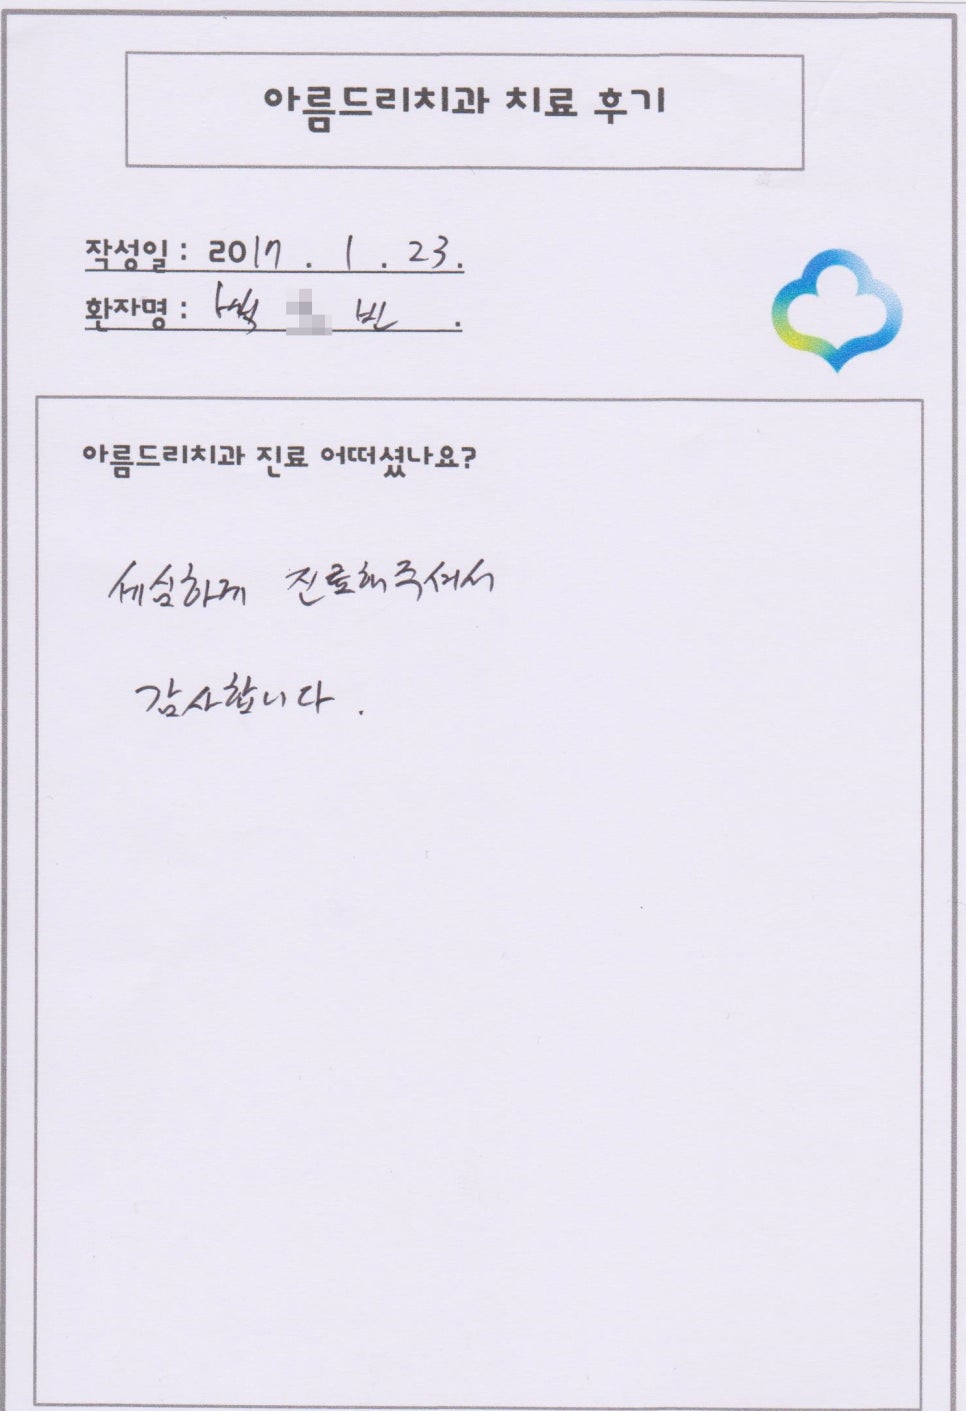 아름드리치과 치료 후기
작성일 : 2017 . 1 . 23.
환자명 : 백 빈 .
아름드리치과 진료 어떠셨나요?
세심하게 진료해주셔서
감사합니다.